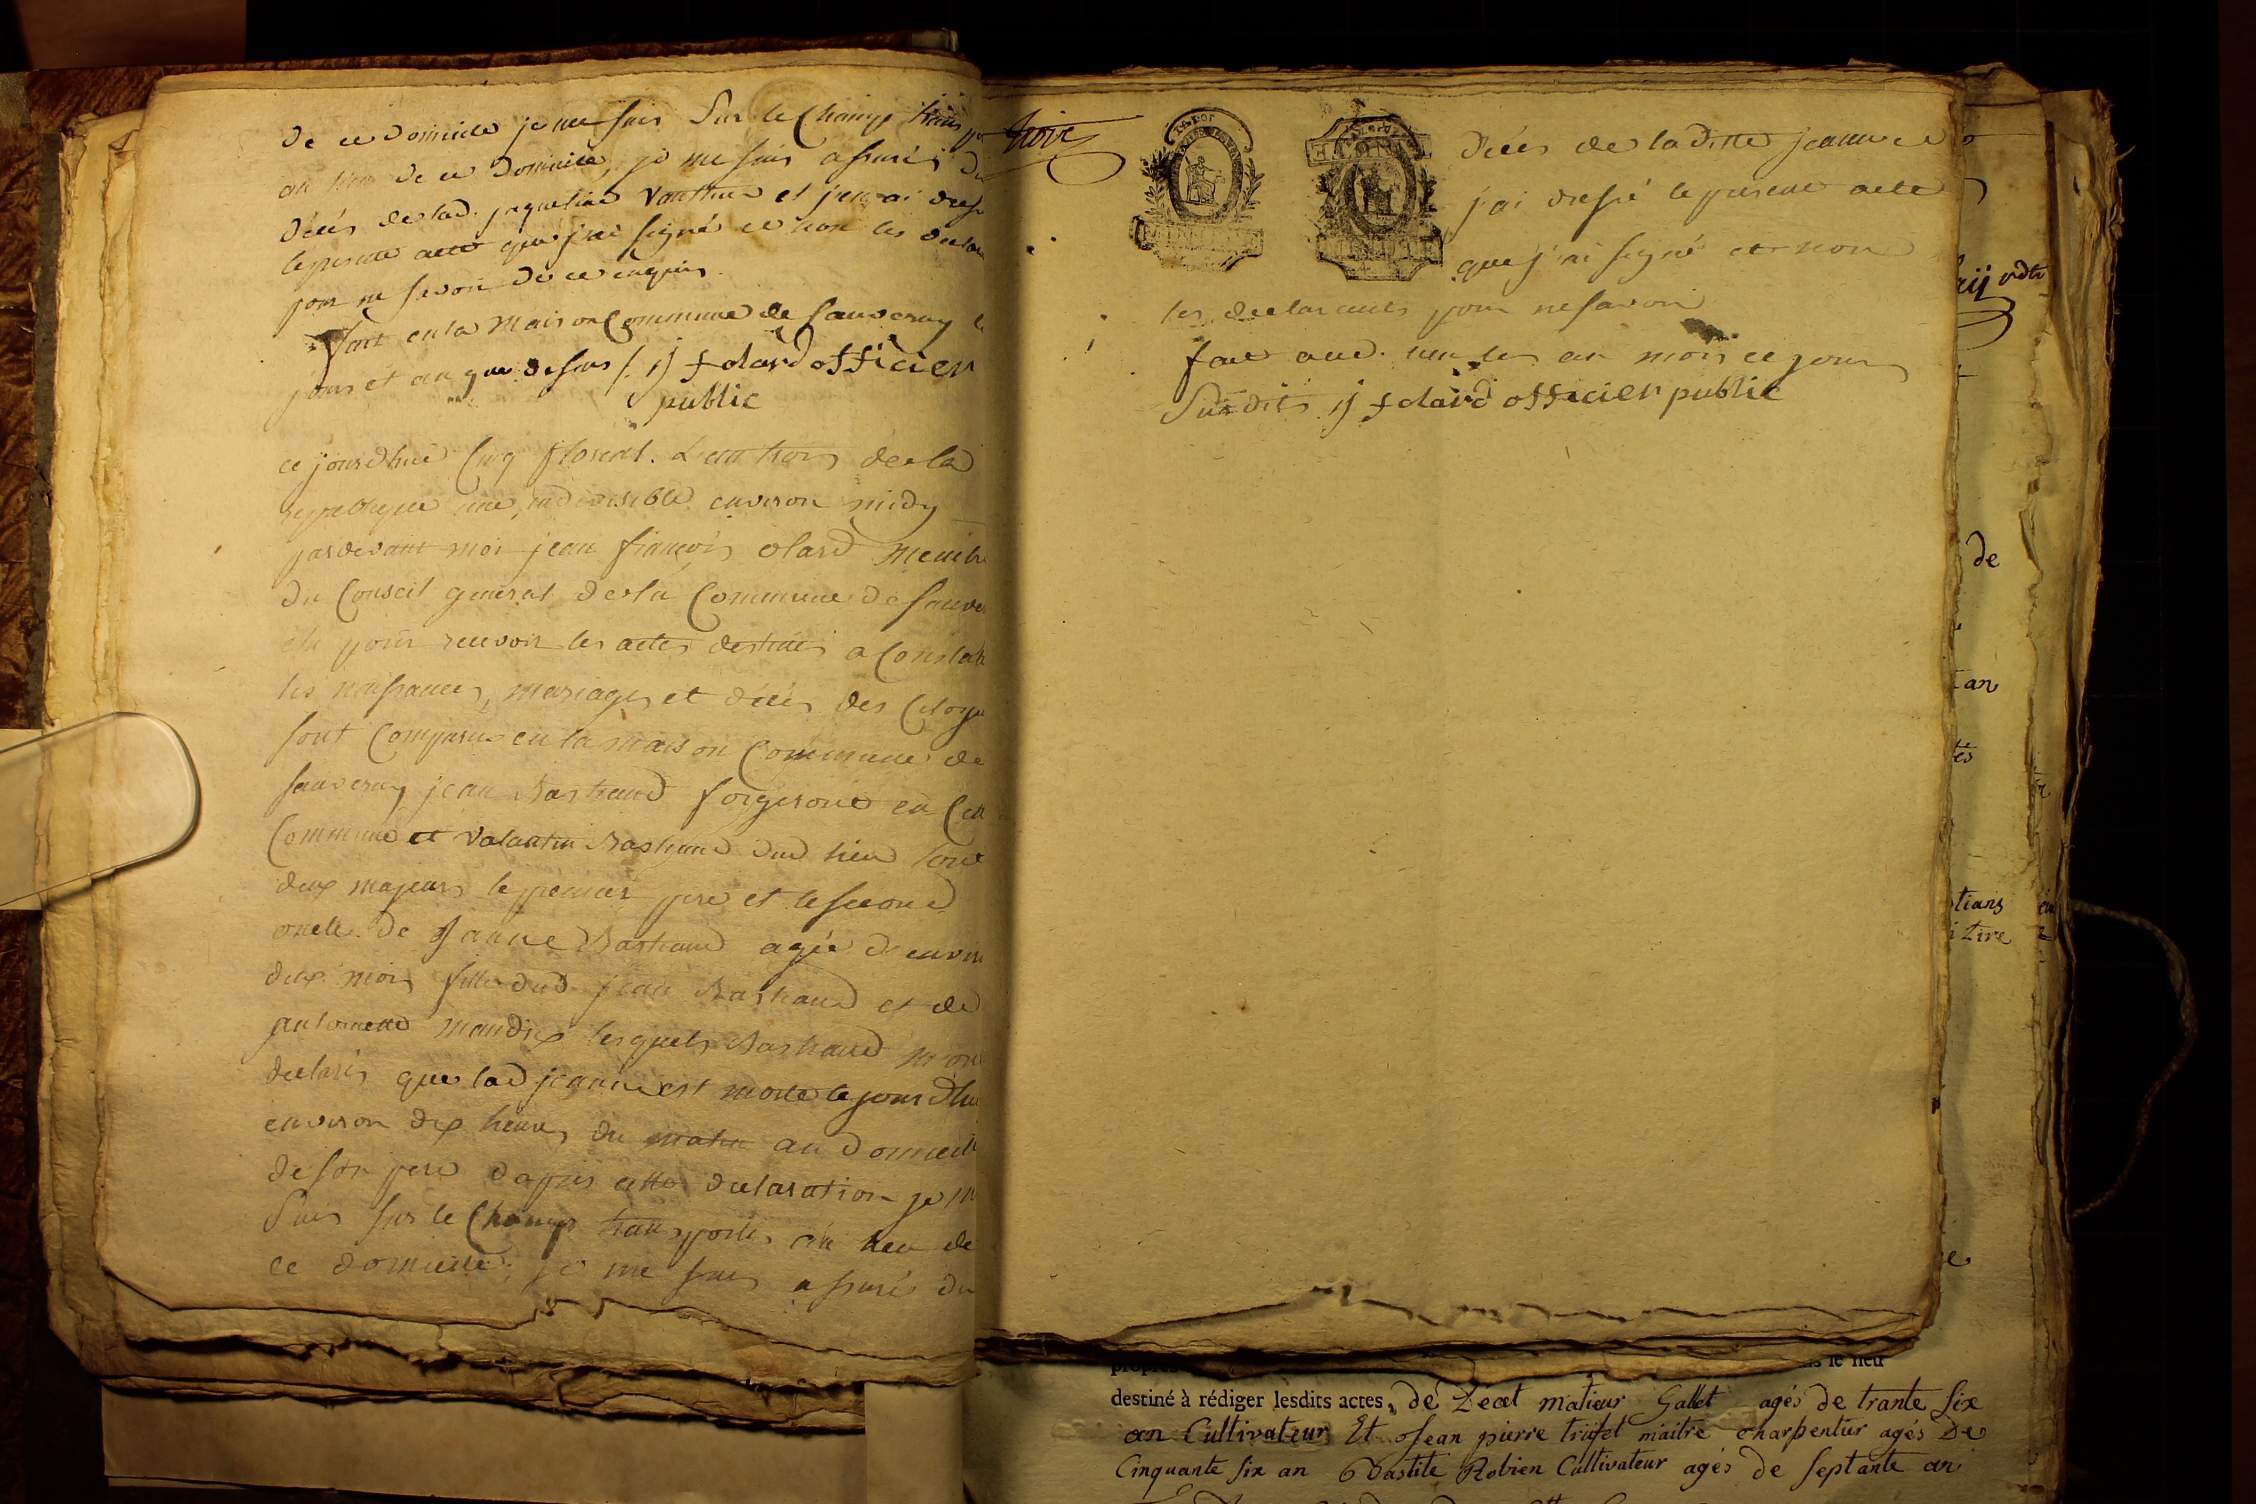 de ce domicile je me suis Sur le Champ trans
au lieu de ce domicile, je me suis assurés du
décés de lad. jaqueline Vauthier et j'en ai dressé
le présent acte que j'ai signé et non les declar
pour ne savoir de ce enquis
fait en la maison Commune de Sauverny le
jours et an que dessus /. jj f olard officier
public
ce jourdhui Cinq floreal. L'an trois de la
republique une, indivisible environ midy
pardevant moi jean françois olard membre
du Conseil general de la Commune de Sauve
elu pour recevoir les actes destinés a Constater
les naissances, mariages et décés des Citoye
sont Comparus en la maison Commune de
Sauverny jean Bastiand forgeront en Cett
Commune et Valantin Bastiand dud lieu tout
deux majeurs le premier pere et le second
oncle de Janne Bastiand agée d'enviro
deux mois fille dud jean Bastiand et de
antoinette mandrix lesquels Bastiand m'ont
declarés que lad jeanne est morte le jourdhui
environ dix heures du matin au domicile
de son pere d'apres cette declaration je m
Suis sur le Champs transportés au lieu de
ce domicile, je me suis assurés du
décés de laditte jeanne et
j'ai dressé le present acte
que j'ai signé et non
les declarants pour ne savoir
fait aud. lieu les an mois et jour
Susdits jj f olard officier public
de
an
tés
tians
tire
destiné à rédiger lesdits actes, de matieur Gallet agés de trante six
an Cultivateur Et Jean pierre trüfet maitre charpentier agés De
Cinquante six an Bastite Robien Cultivateur agés de septante an